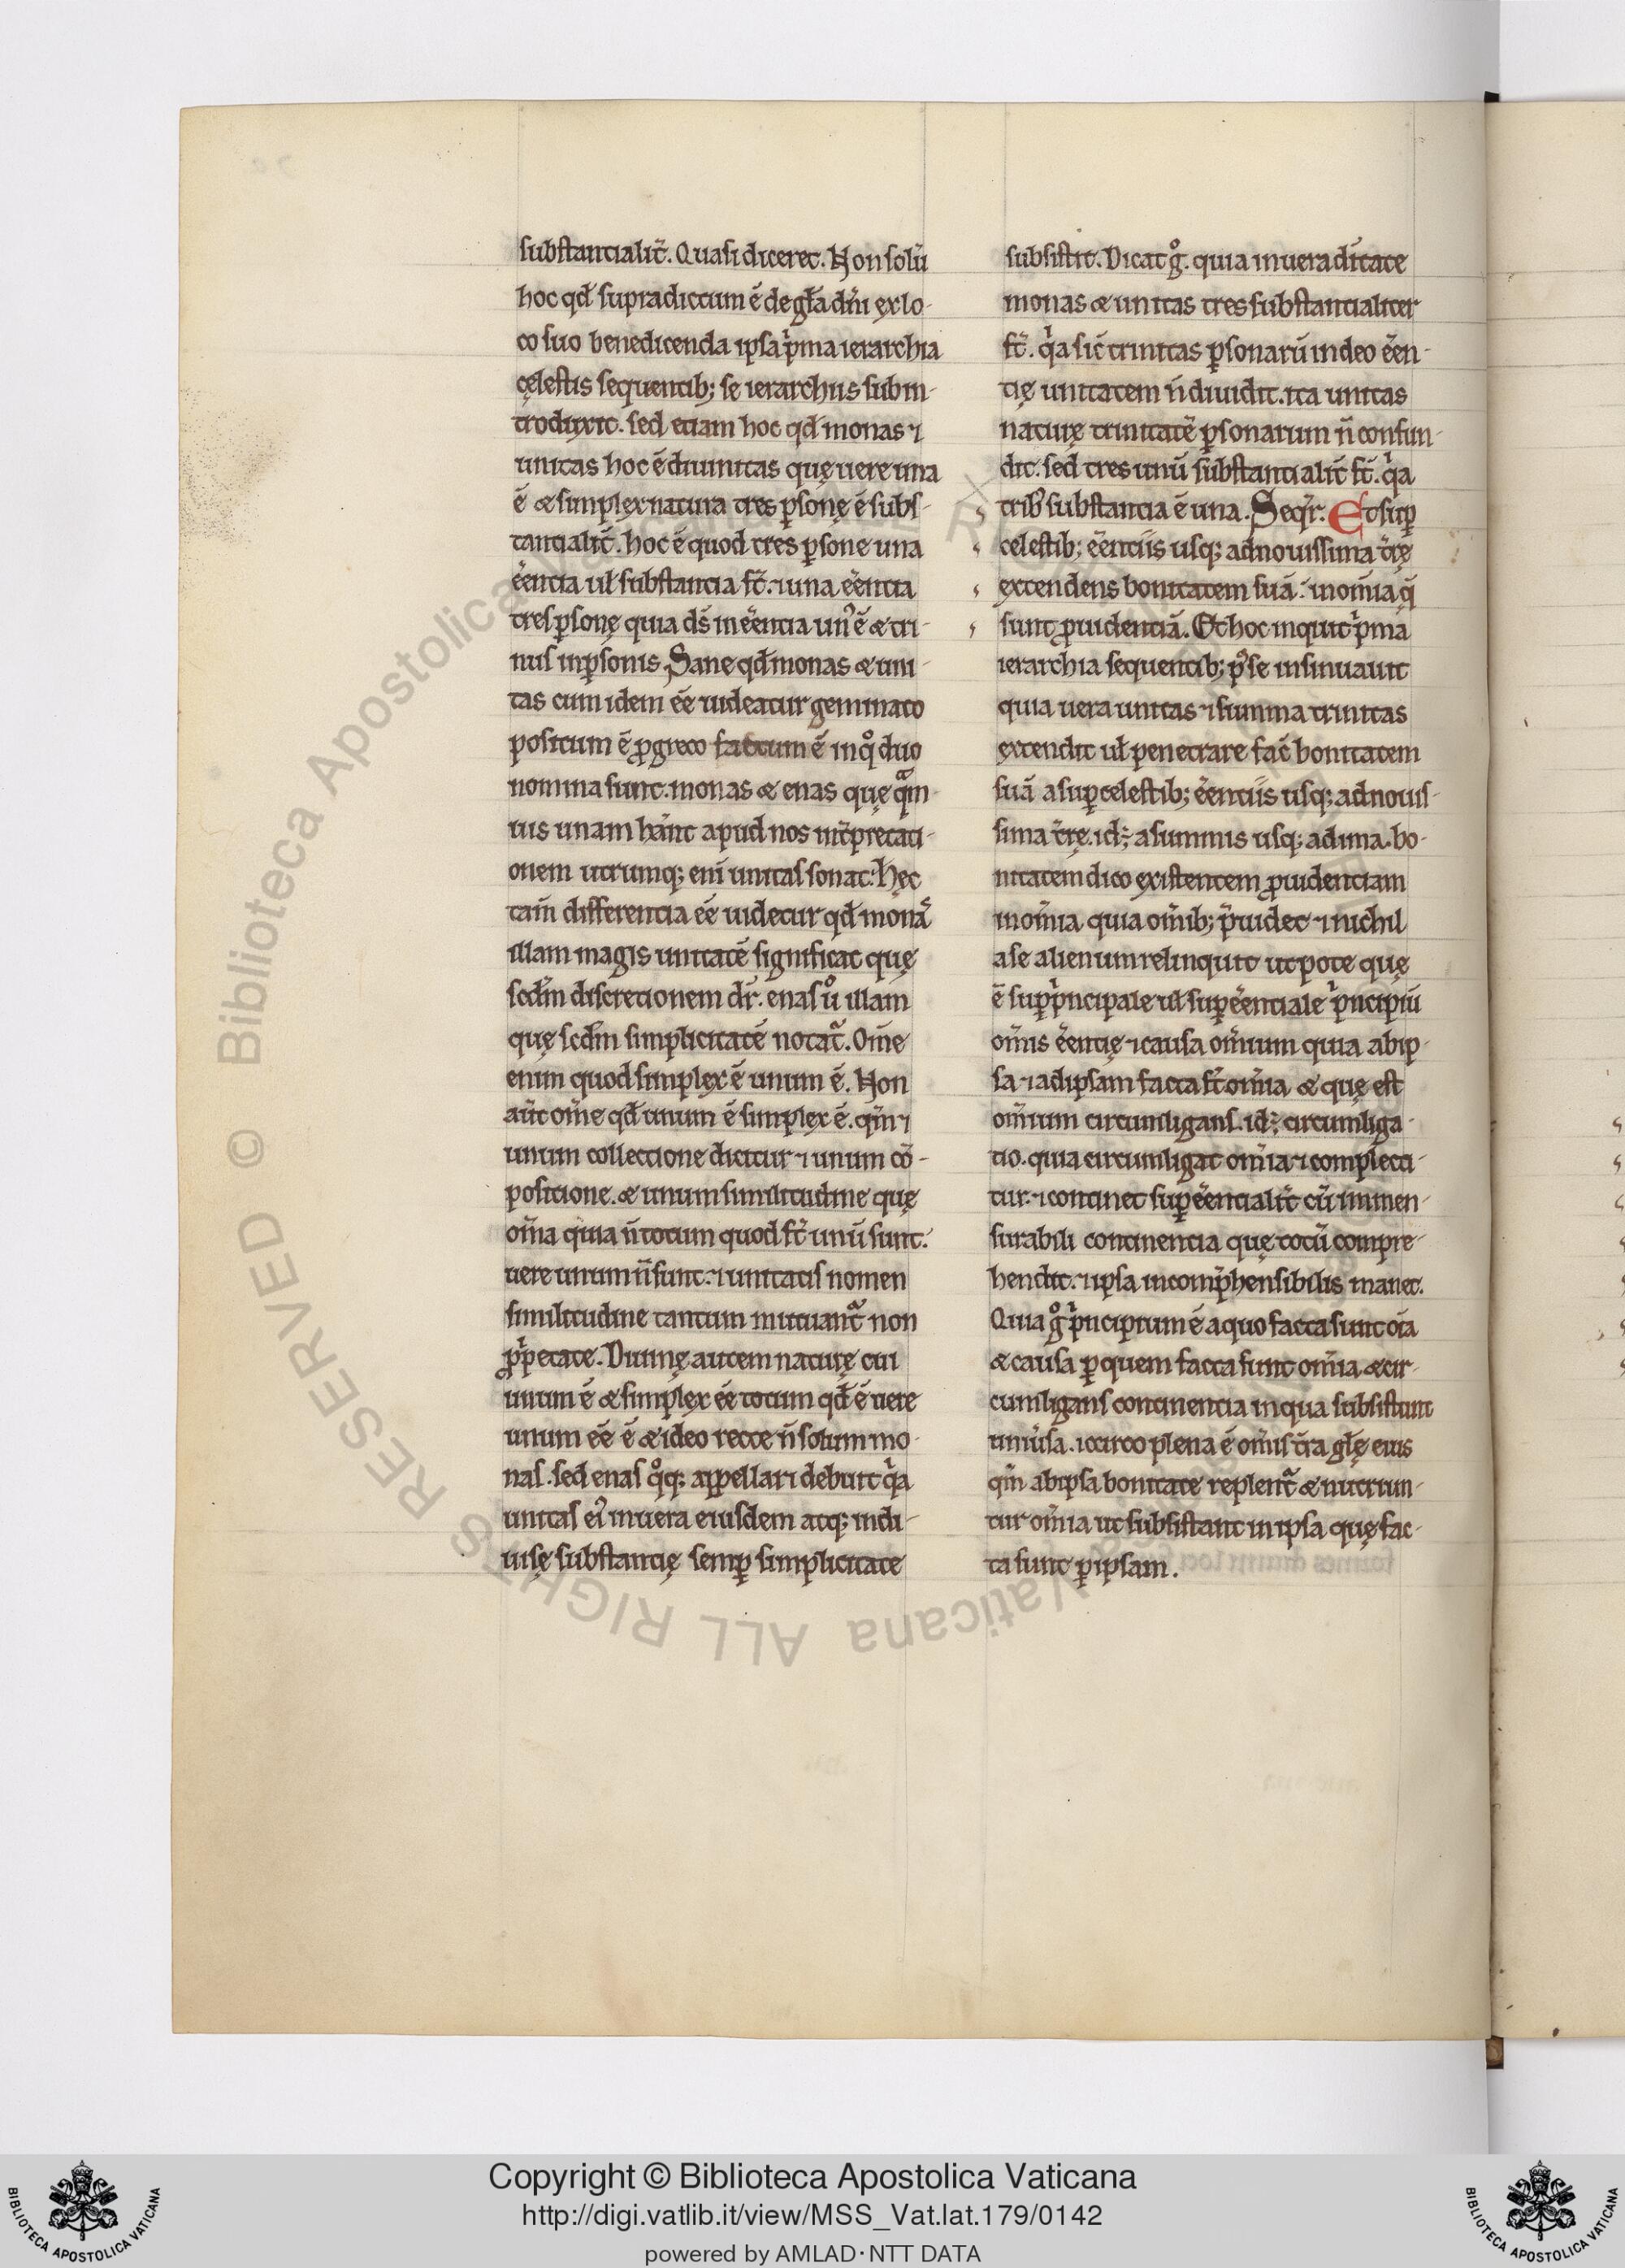 substantialit̄. Quasi diceret. Non solū
hoc qđ supradictum ē de gl̄a dn̄i ex lo-
co suo benedicenda ipsa pͥma ierarchia
cęlestis sequentib; se ierarchiis subin-
troduxit. sed etiam hoc qđ monas ⁊
unitas hoc ē diuinitas quę uere una
ē & simplex natura tres p̱sonę ē subs-
tantialit̄. hoc ē quod tres p̱sone una
ēentia uł substantia st̄. ⁊ una ēentia
tres p̱sonę quia dš in ēentia unꝰ ē & tri-
nus in p̱sonis. Sane qđ monas & uni-
tas cum idem ēe uideatur geminato
positum ē ꝓ greco factum ē in qͦ duo
nomina sunt. monas & enas quę qͣm-
uis unam hanc apud nos int̄pretati-
onem utrumq; eni unitas sonat: hęc
tam̄ differentia ēe uidetur qđ monas
illam magis unitatē significat quę
scd̄m discretionem dr̄. enas ůo illam
quę scd̄m simplicitatē notat᷑. Om̄e
enim quod simplex ē unum ē. Non
aūt om̄e qđ unum ē simplex ē. qm̄ ⁊
unum collectione dicitur ⁊ unum cō-
positione. & unum similitudine quę
om̄a quia n̄ totum quod st̄ unū sunt.
uere unum n̄ sunt. ⁊ unitatis nomen
similitudine tantum mutuant᷑ non
ꝓpͥetate. Diuinę autem naturę cui
unum ē & simplex ēe totum qđ ē uere
unum ēe ē & ideo recte n̄ solum mo-
nas. sed enas qͦq; appellari debuit qͥa
unitas eiꝰ in uera eiusdem atq; indi-
uisę substantię semp̱ simplicitate
subsistit. Dicat gͦ. quia in uera ditate
monas & unitas tres substantialiter
st̄. qͥa sic̄ trinitas p̱sonarū in deo ēen-
tię unitatem n̄ diuidit. ita unitas
naturę trinitatē p̱sonarum n̄ confun-
dit. sed tres unū substantialit̄ st̄. qͥa
tribꝰ substantia ē una. Seqr̄. Et sup̱
celestib; ēentiis usq; ad nouissima t̄rę
extendens bonitatem suā. in om̄ia q̄
sunt ꝓuidentiā. Et hoc inquit pͥma
ierarchia sequentib; pꝰ se insinuauit
quia uera unitas ⁊ summa trinitas
extendit uł penetrare fac̄ bonitatem
suā a sup̱celestib; ēentiis usq; ad nouis-
sima t̄rę. id; a summis usq; ad ima. bo-
nitatem dico existentem ꝓuidentiam
in om̄ia quia om̄ib; p̄uidet ⁊ nichil
a se alienum relinquit utpote quę
ē sup̱pͥncipale uł sup̱ēentiale pͥncipiū
om̄is ēentię ⁊ causa om̄ium quia ab ip-
sa ⁊ ad ipsam facta st̄ om̄ia & quę est
om̄ium circumligans. id; circumliga-
tio. quia circumligat om̄ia ⁊ complecti-
tur. ⁊ continet sup̱ēentialit̄ cū inmen-
surabili continentia quę totū compre-
hendit. ⁊ ipsa incomp̄hensibilis manet.
Quia gͦ pͥncipium ē a quo facta sunt oīa
& causa p̱ quem facta sunt om̄ia. & cir-
cumligans continentia in qua subsistunt
uniu̾sa. iccirco plena ē om̄is t̄ra gl̄ę eius
qm̄ ab ipsa bonitate replent᷑ & nutriun-
tur om̄ia ut subsistant in ipsa quę fac-
ta sunt p̱ ipsam.
© Biblioteca Apostolica Vaticana ALL RIGHTS RESERVED
Copyright © Biblioteca Apostolica Vaticana
http://digi.vatlib.it/view/MSS_Vat.lat.179/0142
powered by AMLAD·NTT DATA
BIBLIOTECA APOSTOLICA VATICANA
BIBLIOTECA APOSTOLICA VATICANA